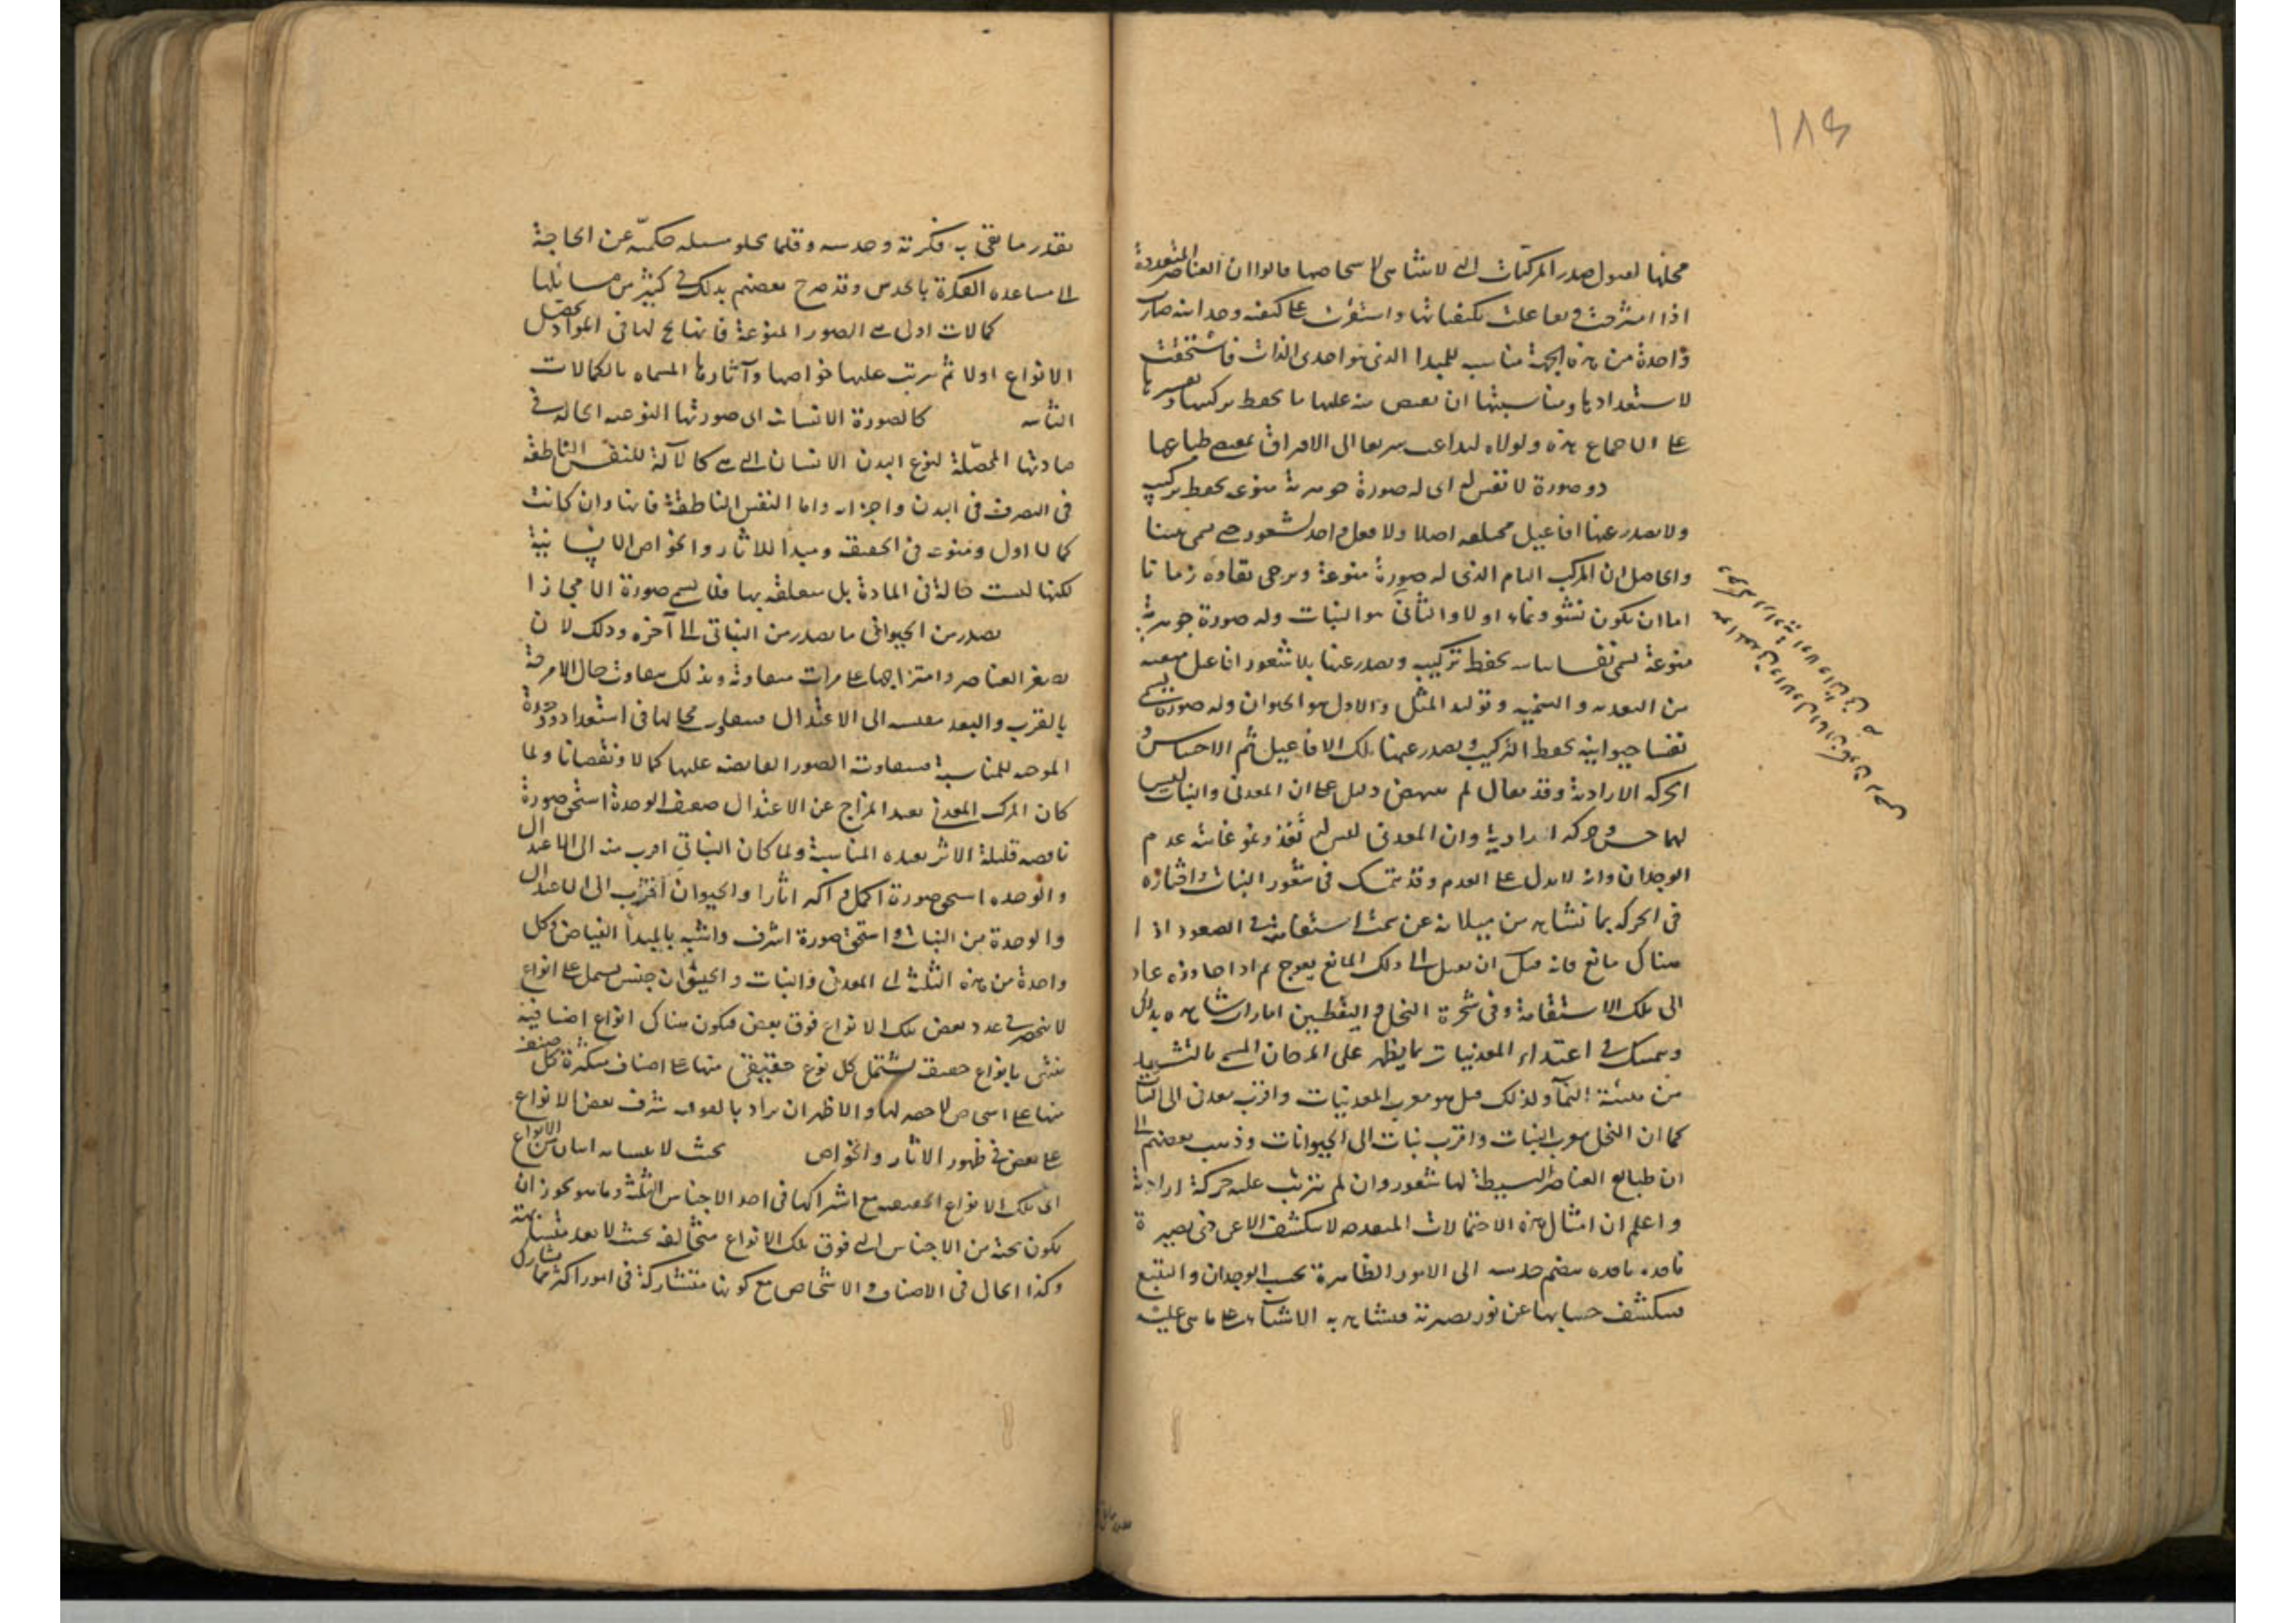 ١٨٤
محلها لقبول صدر المركبات التي لا تتناهى اشخاصها قالوا ان العناصر المتعددة
اذا امتزجت وتفاعلت بكيفياتها واستقرت على كيفية وحدانية صارت
واحدة من هذه الجهة مناسب للمبدا الذي هو احدى الذات فاستحقت
لاستعدادها ومناسبتها ان يفيض منه عليها ما يحفظ تركيبها
على الاجتماع هذه ولولاه لتداعت سريعا الى الافتراق بمقتضى طباعها
ذو صورة لا نفس له اى له صورة جوهرية منوعة يحفظ تركيبه
ولا يصدر عنها افاعيل مختلفة اصلا ولا فعل واحد لشعور حتى يسمى نفسا
والحاصل ان المركب التام الذى له صورة منوعة ويرجى بقاوه زمانا
اما ان يكون نشو ونماء اولا والثانى هو النبات وله صورة جوهرية
منوعة تسمى نفسا نباتية يحفظ تركيبه ويصدر عنها بلا شعور افاعيل
من التغذية والتنمية وتوليد المثل والاول هو الحيوان وله صورة تسمى
نفسا حيوانية يحفظ التركيب ويصدر عنها تلك الافاعيل ثم الاحساس و
الحركة الارادية وقد يقال لم ينهض دليل على ان المعدنى والنبات ليس
لهما حس وحركة ارادية وان المعدنى ليس له تغذ ونمو غايته عدم
الوجدان وانه لا يدل على العدم وقد يتمسك فى شعور النبات واختياره
فى الحركة بما نشاهد من ميلانه عن سمت استقامته فى الصعود اذا
هناك مانع فانه قبل ان يصل الى ذلك المانع يعوج ثم اذا جاوزه عاد
الى تلك الاستقامة وفى شجرة النخل واليقطين امارات شاهدة بذلك
ويتمسك فى اغتذاء المعدنيات بما يظهر على المرجان
من هيئة النماء ولذلك قيل هو اقرب المعدنيات واقرب معدن الى النبات
كما ان النخل اقرب النبات واقرب نبات الى الحيوانات وذهب بعضهم الى
ان طبايع العناصر البسيطة لها شعور وان لم يترتب عليه حركة ارادية
واعلم ان امثال هذه الاحتمالات المتعددة لا ينكشف الا عن ذى بصيرة
ناقدة يضم حدسه الى الامور الظاهرة بحسب الوجدان والتتبع
فينكشف حسبانها عن نور بصيرته فيشاهد به الاشياء على ما هى عليه
بقدر ما تفى به فكرته وحدسه وقلما يخلو مسئلة حكمية عن الحاجة
الى مساعدة الفكرة بالحدس وقد صرح بعضهم بذلك فى كثير من مسائلها
كمالات اولى هى الصور المنوعة فانها بحلولها فى المواد يحصل
الانواع اولا ثم يترتب عليها خواصها وآثارها المسماة بالكمالات
الثانية كالصورة الانسانية اى صورتها النوعية الحالة فى
مادتها المحصلة لنوع البدن الانسانى التى هى كالآلة للنفس الناطقة
فى التصرف فى البدن واجزائه واما النفس الناطقة فانها وان كانت
كمالا اول ومنوعه فى الحقيقة ومبدأ للاثار والخواص الانسانية
لكنها ليست حالة فى المادة بل متعلقة بها فلا يسمى صورة الا مجازا
يصدر من الحيوانى ما يصدر من النباتى الى آخره وذلك لان
تصغر العناصر وامتزاجها على مراتب متفاوتة وبذلك يتفاوت حال الامزجة
بالقرب والبعد بنسبة الى الاعتدال فيتفاوت محالها فى استعداد وحدة
الموجبة للمناسبة فيتفاوت الصور الفائضة عليها كمالا ونقصانا ولما
كان المركب المعدنى بعيد المزاج عن الاعتدال ضعيف الوحدة استحق صورة
ناقصة قليلة الاثر بعيدة المناسبة ولما كان النباتى اقرب منه الى الاعتدال
والوحدة استحق صورة اكمل واكثر اثارا والحيوان اقرب الى الاعتدال
والوحدة من النبات واستحق صورة اشرف واشبه بالمبدأ الفياض وكل
واحدة من هذه الثلث اى المعدنى والنبات والحيوان جنس يشمل على انواع
لا ينحصر فى عدد بعض تلك الانواع فوق بعض فيكون هناك انواع اضافية
تنتهى بانواع حقيقية يشتمل كل نوع حقيقى منها على اصناف متكثرة كل صنف
منها على اشخاص لا حصر لها والاظهر ان يراد بالفوقية شرف بعض الانواع
على بعض فى ظهور الاثار والخواص بحيث لا يتشابه اثنان من الانواع
اى تلك الانواع الحقيقية مع اشتراكها فى احد الاجناس الثلثة وما هو يجوز ان
يكون تحته من الاجناس التى فوق تلك الانواع متخالفة بحيث لا يعد متشابهة
وكذا الحال فى الاصناف والاشخاص مع كونها متشاركة فى امور اكثر مما يشارك